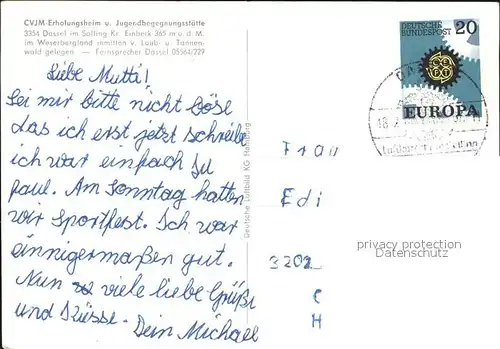 CVJM-Erholungsheim u. Jugendbegegnungsstätte
3354 Dassel im Solling Kr. Einbeck 365 m ü. d. M.
im Weserbergland inmitten v. Laub- u. Tannen-
wald gelegen — Fernsprecher Dassel 05564/229
Liebe Mutti!
Sei mir bitte nicht böse
das ich erst jetzt schreibe
ich war einfach zu
faul. Am Sonntag hatten
wir Sportfest. Ich war
einnigermaßen gut.
Nun viele liebe Grüße
und Küsse. Dein Michael
Deutsche Luftbild KG Hamburg
DEUTSCHE
BUNDESPOST
20
CEPT
EUROPA
18
Frau
Edi
3202
C
H
privacy protection
Datenschutz